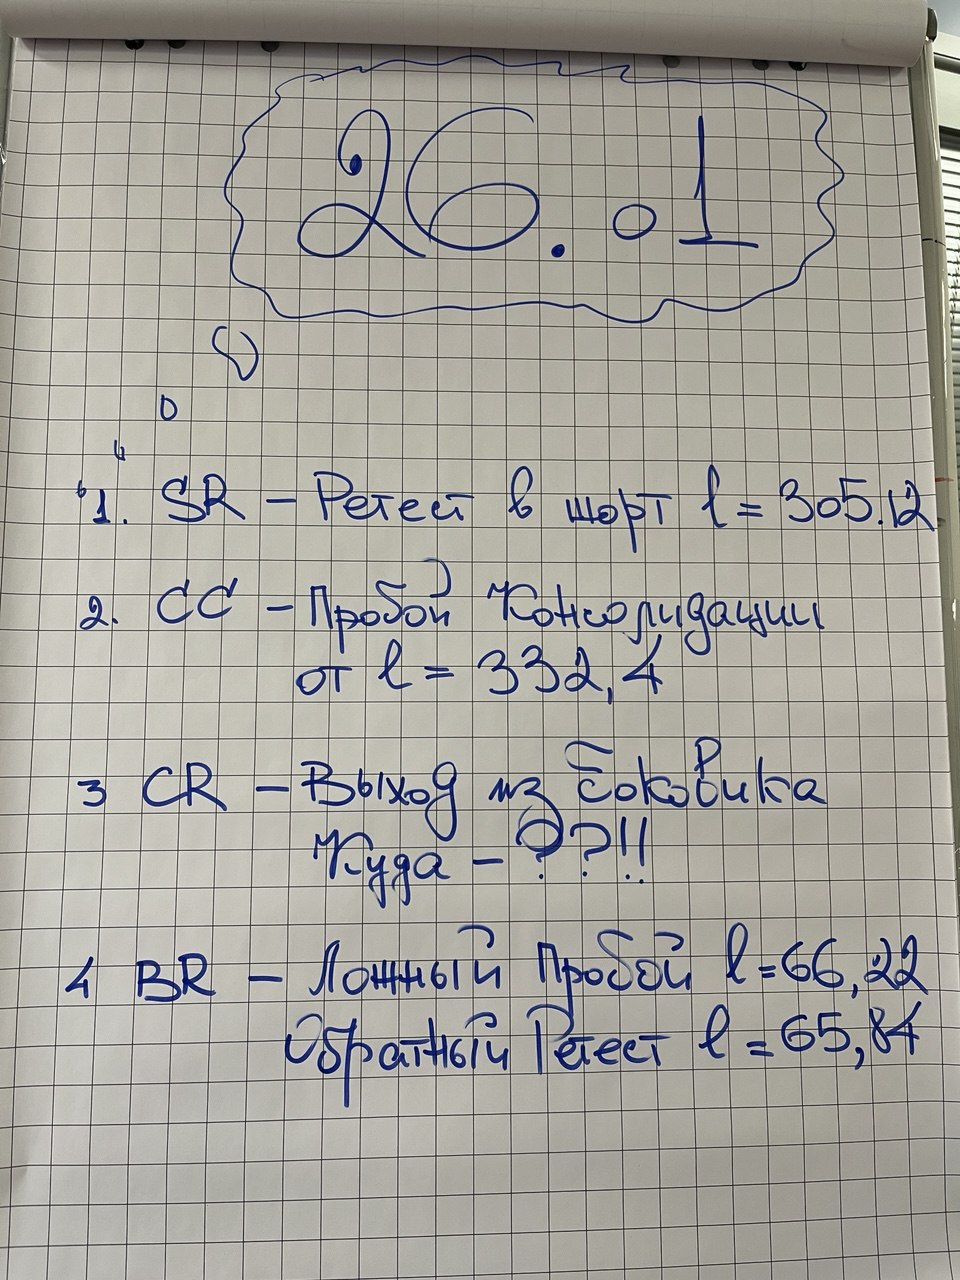 26.01
1. SR - Ретест в шорт l = 305.12
2. CC - Пробой Консолидации
от l = 332,4
3 CR - Выход из боковика
Куда - ??!!
4 BR - Ложный Пробой l = 66,22
Обратный Ретест l = 65,84